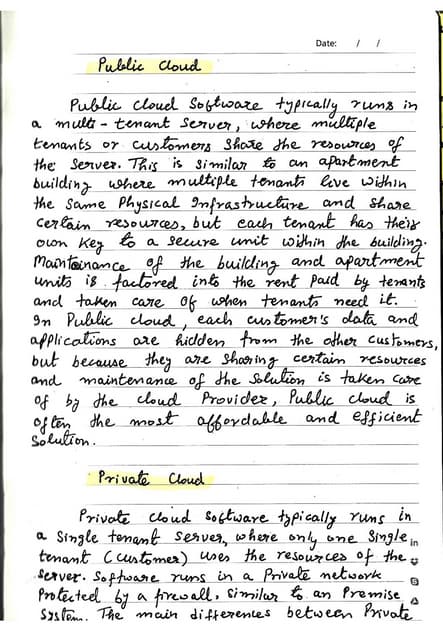 Date: / /
Public Cloud
Public Cloud Software typically runs in
a multi-tenant Server, where multiple
tenants or customers Share the resources of
the Server. This is similar to an apartment
building where multiple tenants live within
the Same Physical Infrastructure and Share
certain resources, but each tenant has their
own Key to a secure unit within the building.
Maintainance of the building and apartment
units is factored into the rent paid by tenants
and taken care of when tenants need it.
In Public cloud, each customer's data and
applications are hidden from the other customers,
but because they are Sharing certain resources
and maintenance of the Solution is taken care
of by the cloud Provider, Public cloud is
often the most affordable and efficient
Solution.
Private Cloud
Private cloud Software typically runs in
a Single tenant server, where only one Single
tenant (customer) uses the resources of the
Server. Software runs in a Private network
Protected by a firewall, Similar to an Premise
System. The main differences between Private